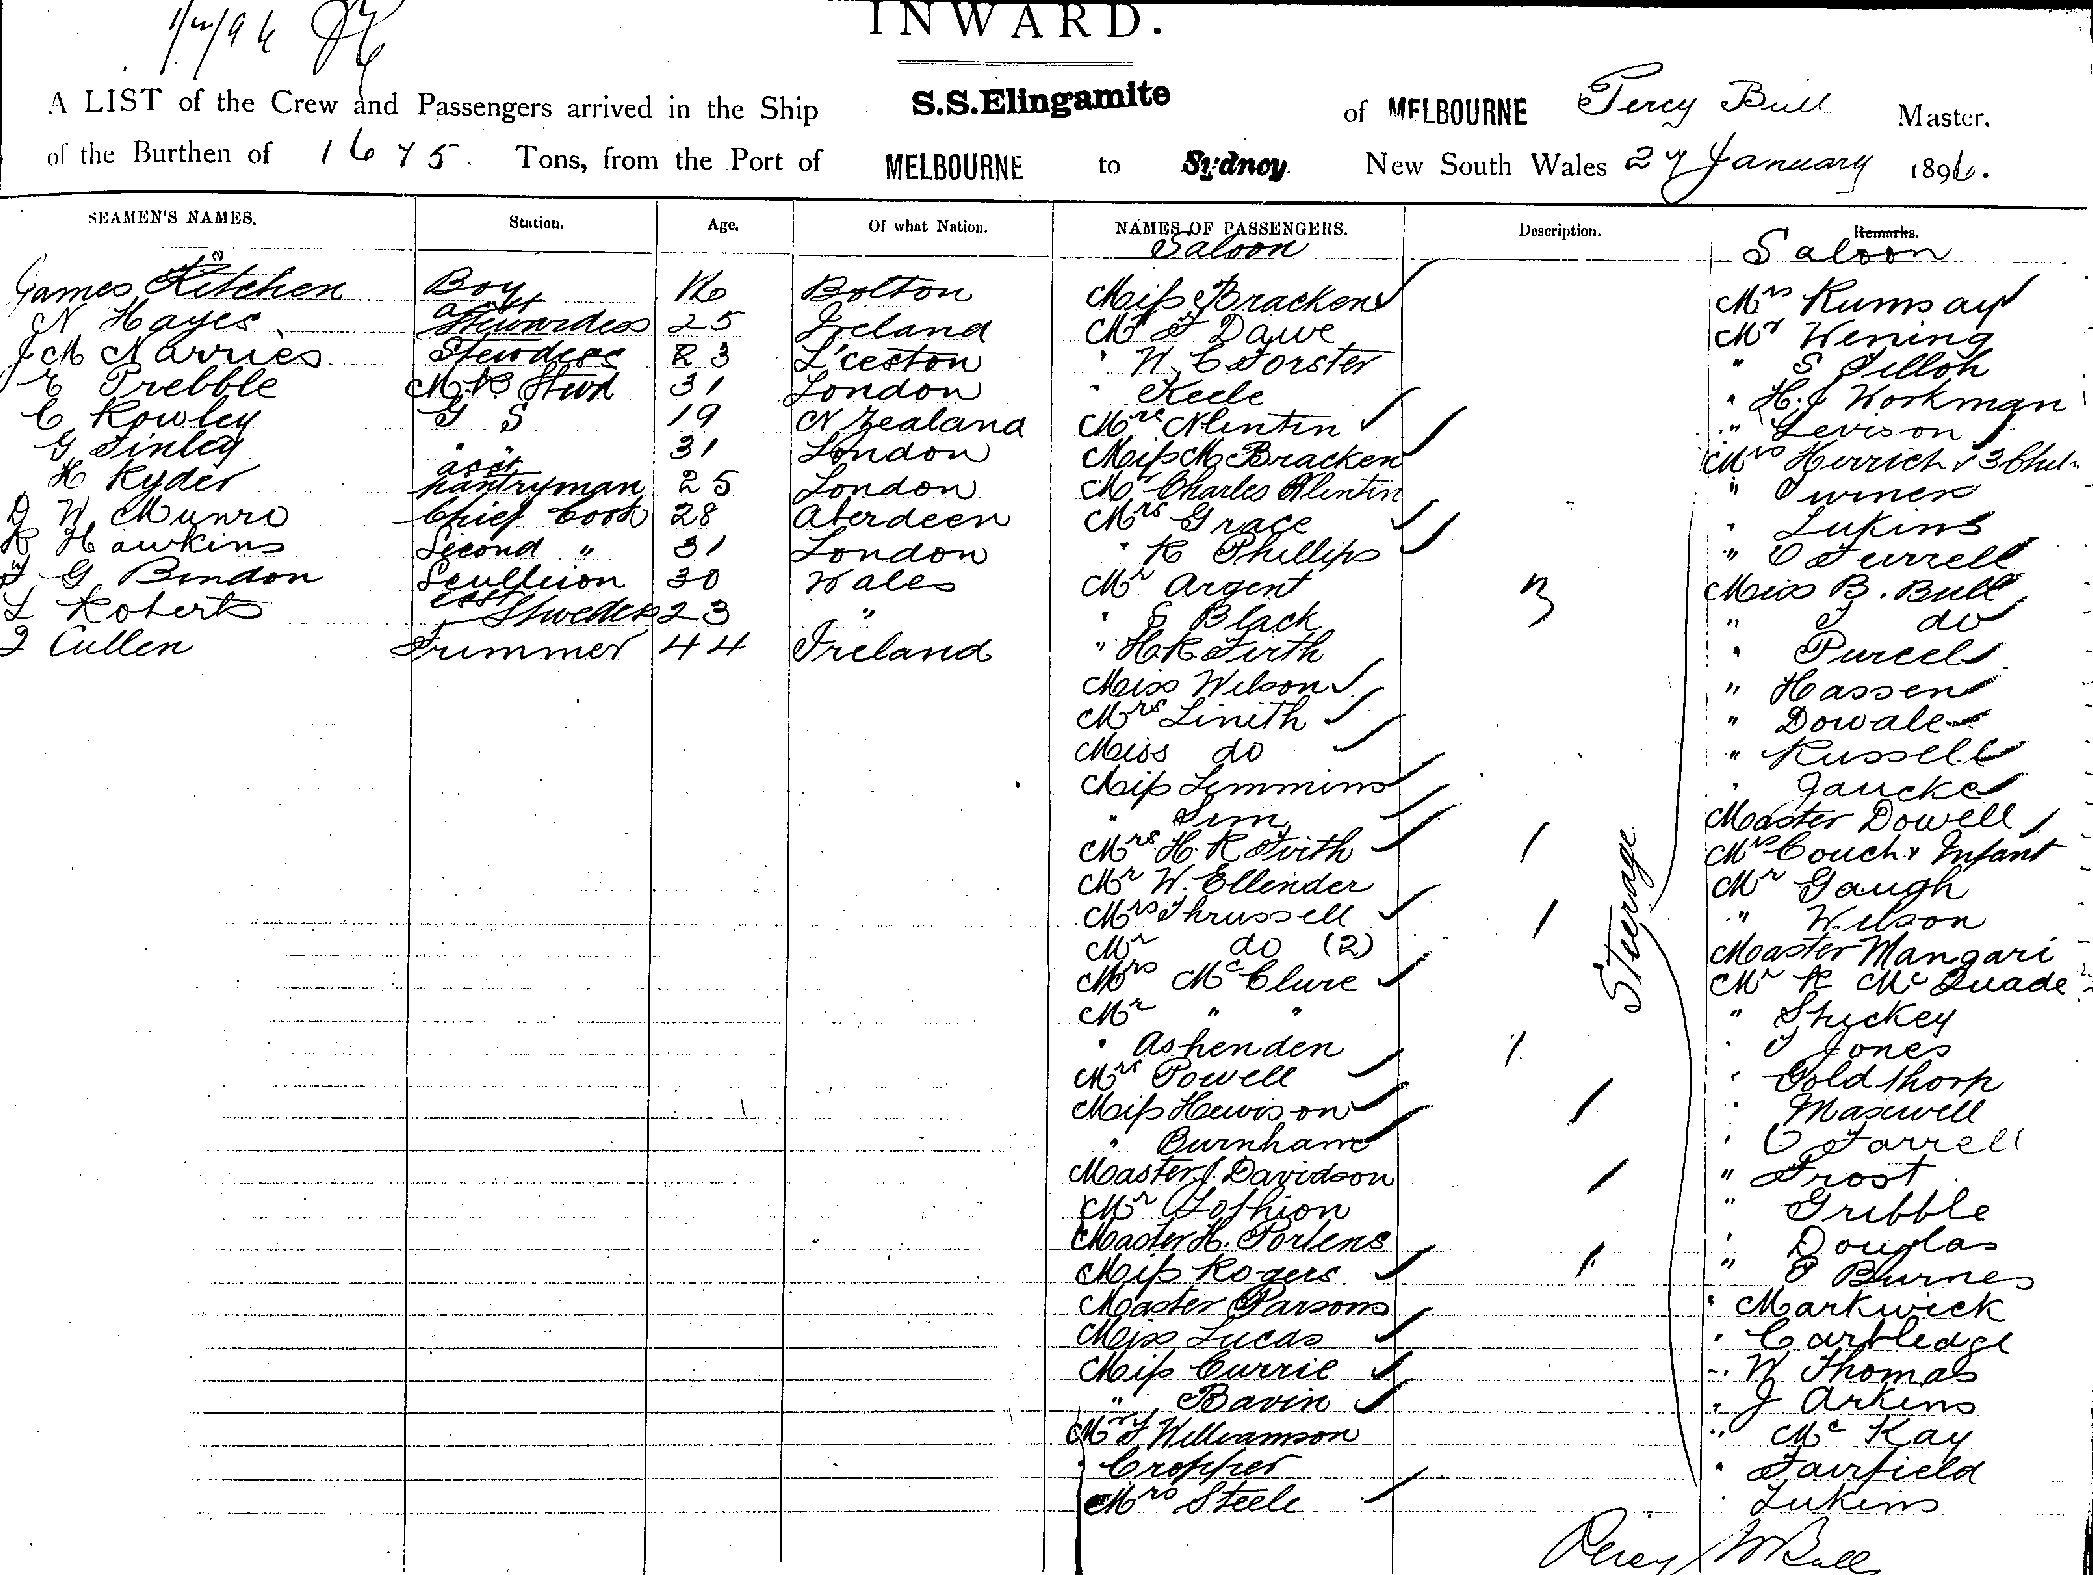 INWARD.
A LIST of the Crew and Passengers arrived in the Ship S.S.Elingamite of MELBOURNE Percy Bull Master.
of the Burthen of 1675 Tons, from the Port of MELBOURNE to Sydney New South Wales 27 January 1896.
SEAMEN'S NAMES. Station. Age. Of what Nation. NAMES OF PASSENGERS. Description. Remarks.
Saloon Saloon
James Kitchen Boy 16 Bolton Miss Bracken Mrs Rumsay
N Hayes asst Stewardess 25 Ireland Mr T Dawe Mr Wening
J M Narries Stewdess 23 L'ceston " W. C Forster " S Tilloh
E Trebble Stwd 31 London " Keele " H. J Workman
C Rowley G S 19 N Zealand Mrs Nlintin " Levison
G Finley " " 31 London Miss M Bracken Mrs Herrich & 3 Chil
H Ryder asst pantryman 25 London Mr Charles Nlintin " Twiner
D W. Munro Chief Cook 28 Aberdeen Mrs Grace " Lukins
R Hawkins Second " 31 London " R Phillips " O Turrell
T G Bindon Scullion 30 Wales Mr Argent 3 Miss B. Bull
L Roberts Stwedess 23 " " S Black " T do
J Cullen Trimmer 44 Ireland " H R Firth " Purcel
Miss Wilson " Hassen
Mrs Linith " Dowale
Miss do " Russell
Miss Limmins " Jaucke
" Sim Master Dowell
Mrs H. R Firth 1 Mrs Couch & Infant
Mr W. Ellender Mr Gaugh
Mrs Thrussell 1 " Wilson
Mr do (2) Master Mangari
Mrs McClure Mr R McQuade
Mr " " " Shickey
" Ashenden 1 " T Jones
Mrs Powell " Goldthorp
Miss Hewison 1 " Maxwell
" Burnham " O Farrell
Master J. Davidson 1 " Frost
Mr Lothion " Gribble
Master H. Portens " Douglas
Miss Rogers 1 " P Burnes
Master Parsons " Markwick
Miss Lucas " Cartledge
Miss Currie " W Thomas
" Bavin " J Arkins
Mr J Williamson " McKay
" Cropper " Fairfield
Mrs Steele " Lukins
Sterage
Percy W Bull